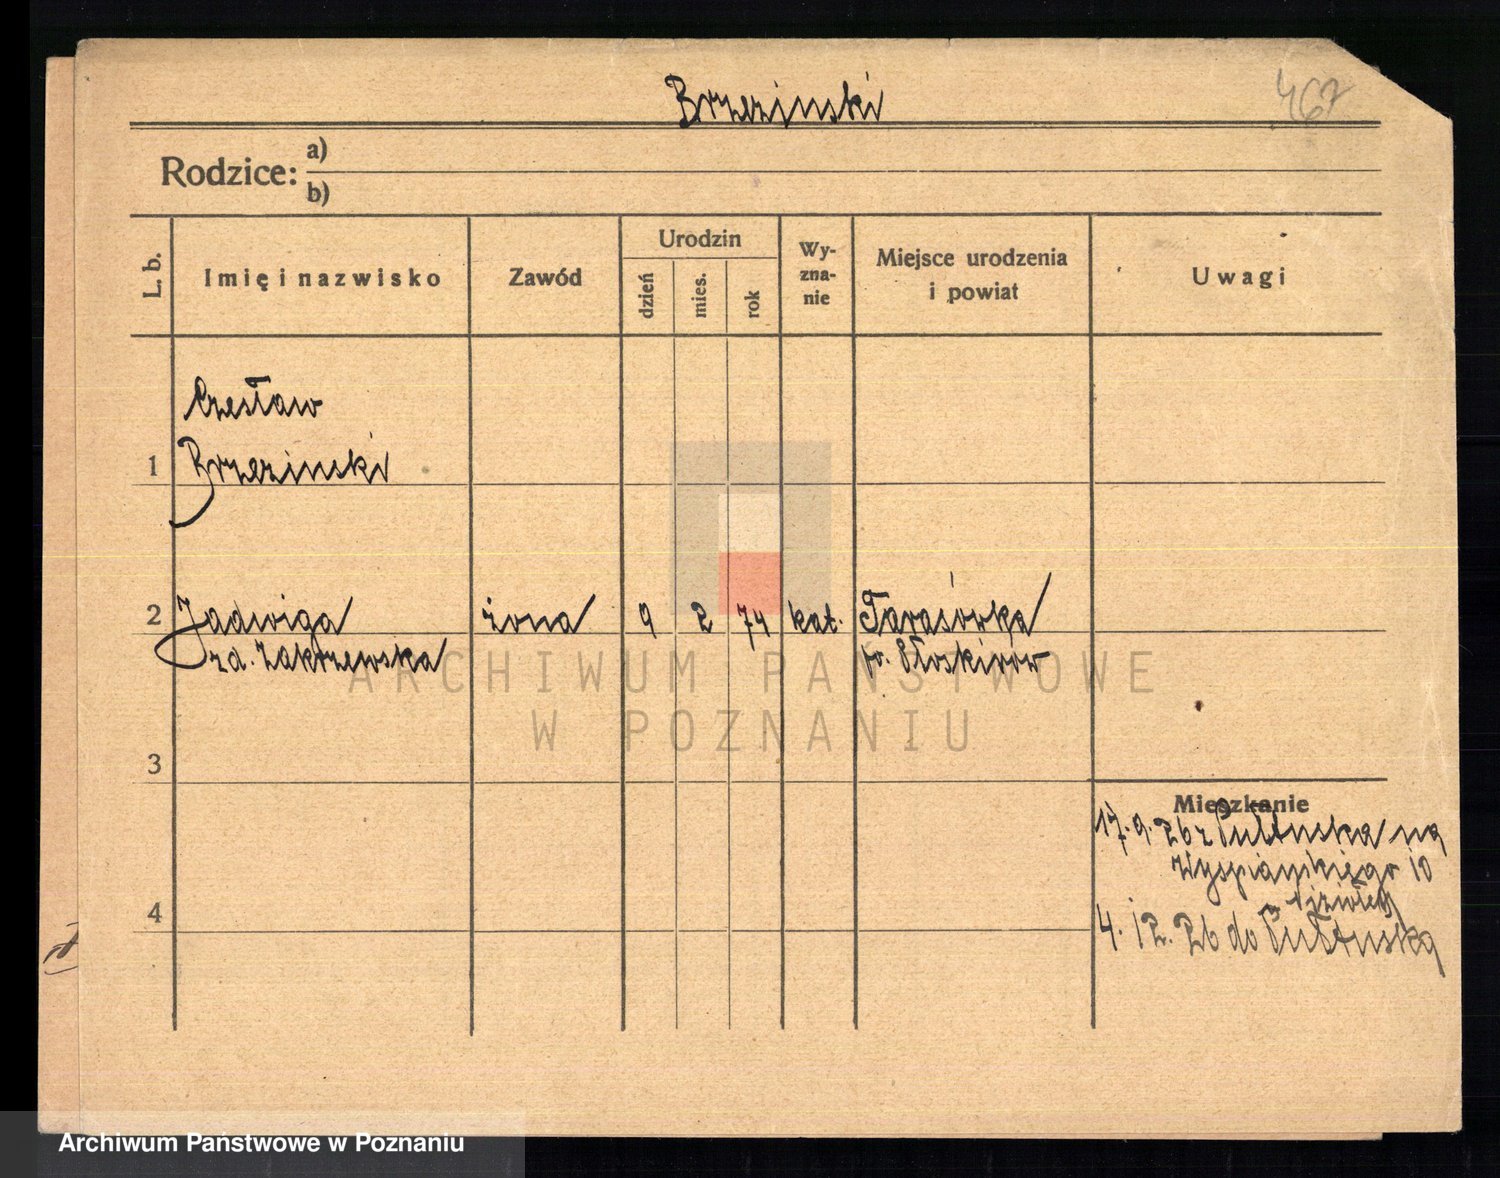 Brzezinski
467
Rodzice: a)
b)
L. b.
Imię i nazwisko
Zawód
Urodzin
dzień
mies.
rok
Wy-
zna-
nie
Miejsce urodzenia
i powiat
Uwagi
Czesław
1 Brzezinski
2 Jadwiga żona 9 2 74 kat. Tarasówka
zd. Zakrzewska
ARCHIWUM PAŃSTWOWE
W POZNANIU
3
Mieszkanie
17. 9. 26 z Pułtuska na
Wyspiańskiego 10
4
4. 12. 26 do Pułtuska
Archiwum Państwowe w Poznaniu